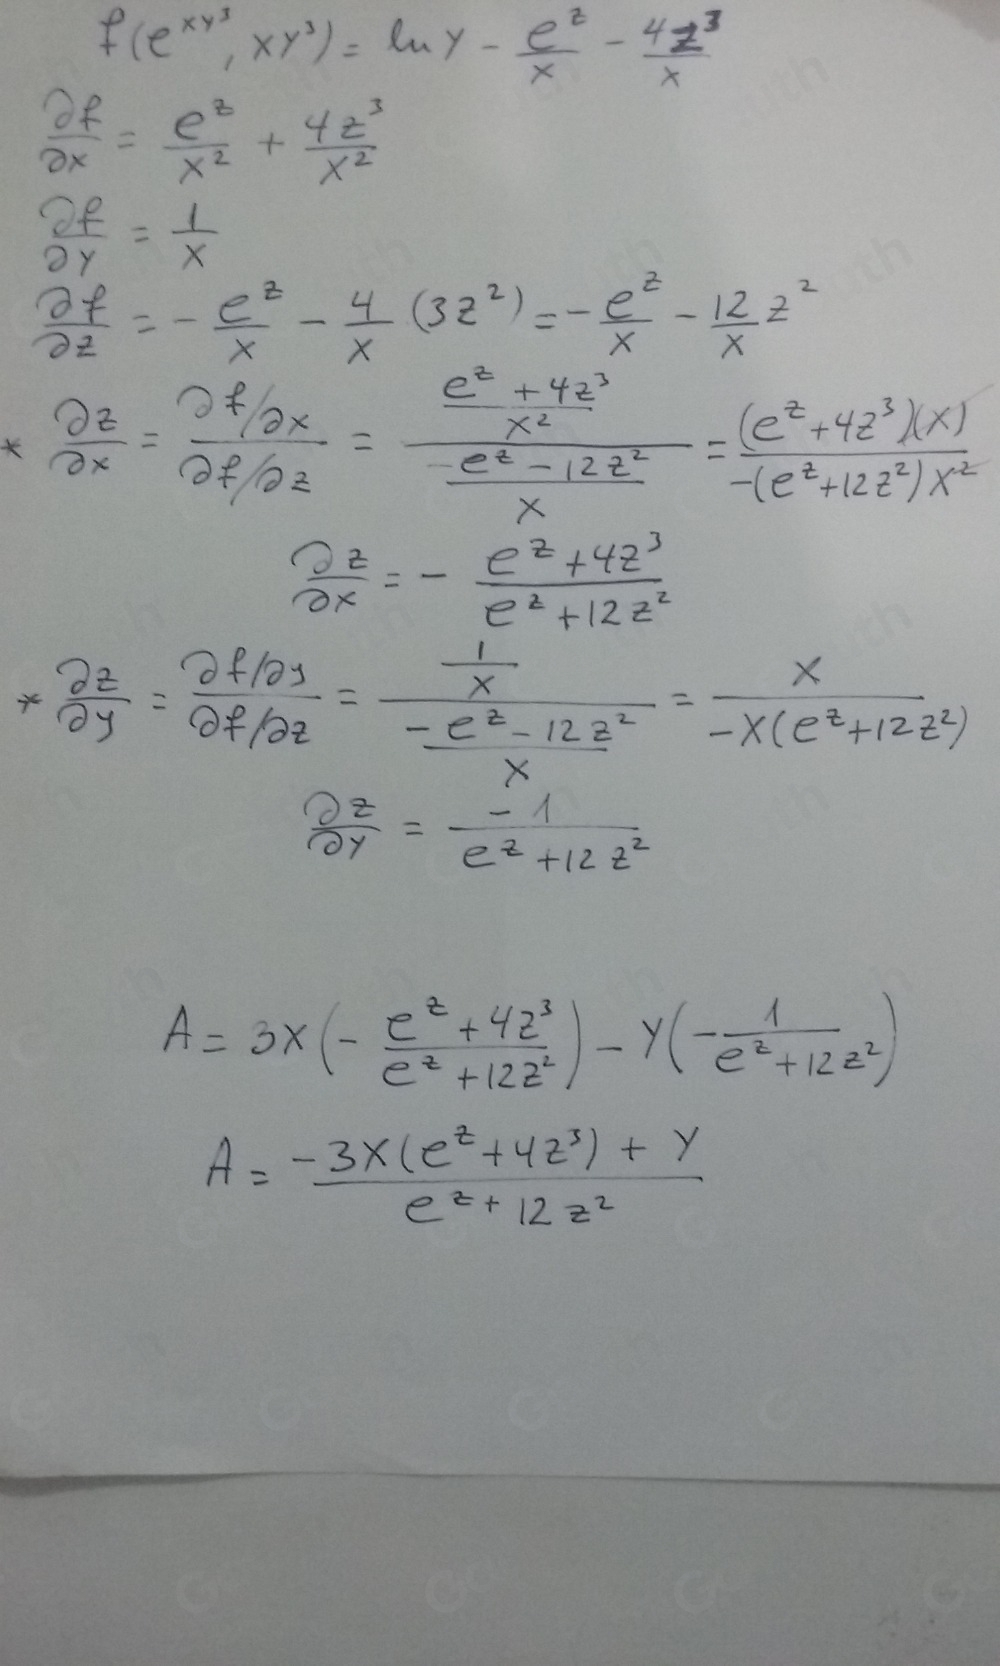 f(e^{xy^3}, xy^3) = ln y - e^z/x - 4z^3/x
∂f/∂x = e^z/x^2 + 4z^3/x^2
∂f/∂y = 1/x
∂f/∂z = - e^z/x - 4/x (3z^2) = - e^z/x - 12/x z^2
* ∂z/∂x = (∂f/∂x)/(∂f/∂z) = ((e^z + 4z^3)/x^2)/((-e^z - 12z^2)/x) = (e^z + 4z^3)(x)/(-(e^z + 12z^2)x^2)
∂z/∂x = - (e^z + 4z^3)/(e^z + 12z^2)
* ∂z/∂y = (∂f/∂y)/(∂f/∂z) = (1/x)/((-e^z - 12z^2)/x) = x/(-x(e^z + 12z^2))
∂z/∂y = -1/(e^z + 12z^2)
A = 3x(- (e^z + 4z^3)/(e^z + 12z^2)) - y(- 1/(e^z + 12z^2))
A = (-3x(e^z + 4z^3) + y)/(e^z + 12z^2)